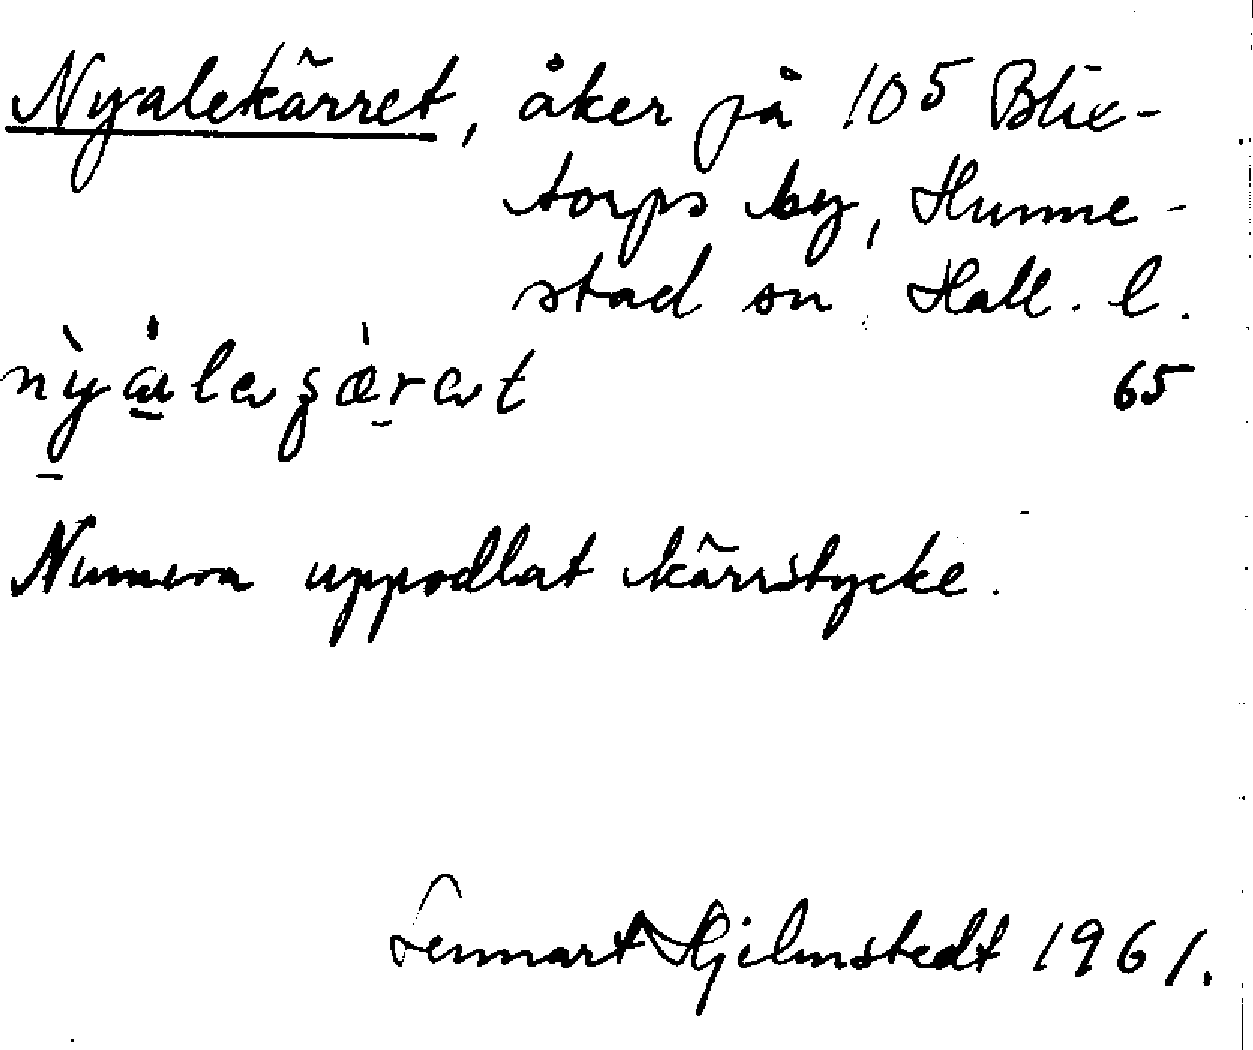 Nyalekärret, åker på 105 Blix-
torps by, Hunne-
stad sn Hall. l.
65
Numera uppodlat kärrstycke.
Lennart Hjelmstedt 1961.